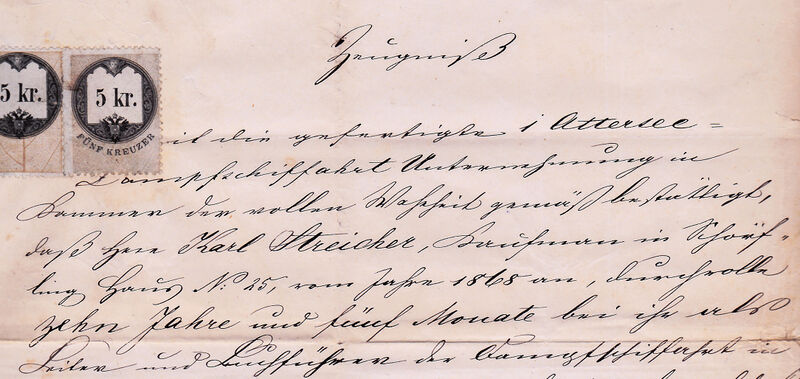 Zeugniß
5 kr.
5 kr.
FÜNF KREUZER
die gefertigte Attersee=
Dampfschiffahrt Unternehmung in
Kammer der vollen Wahrheit gemäß bestättigt,
daß Herr Karl Streicher, Kaufman in Schörf-
ling Haus N: 25, vom Jahre 1868 an, durch volle
zehn Jahre und fünf Monate bei ihr als
Leiter und Buchführer der Dampfschiffahrt in